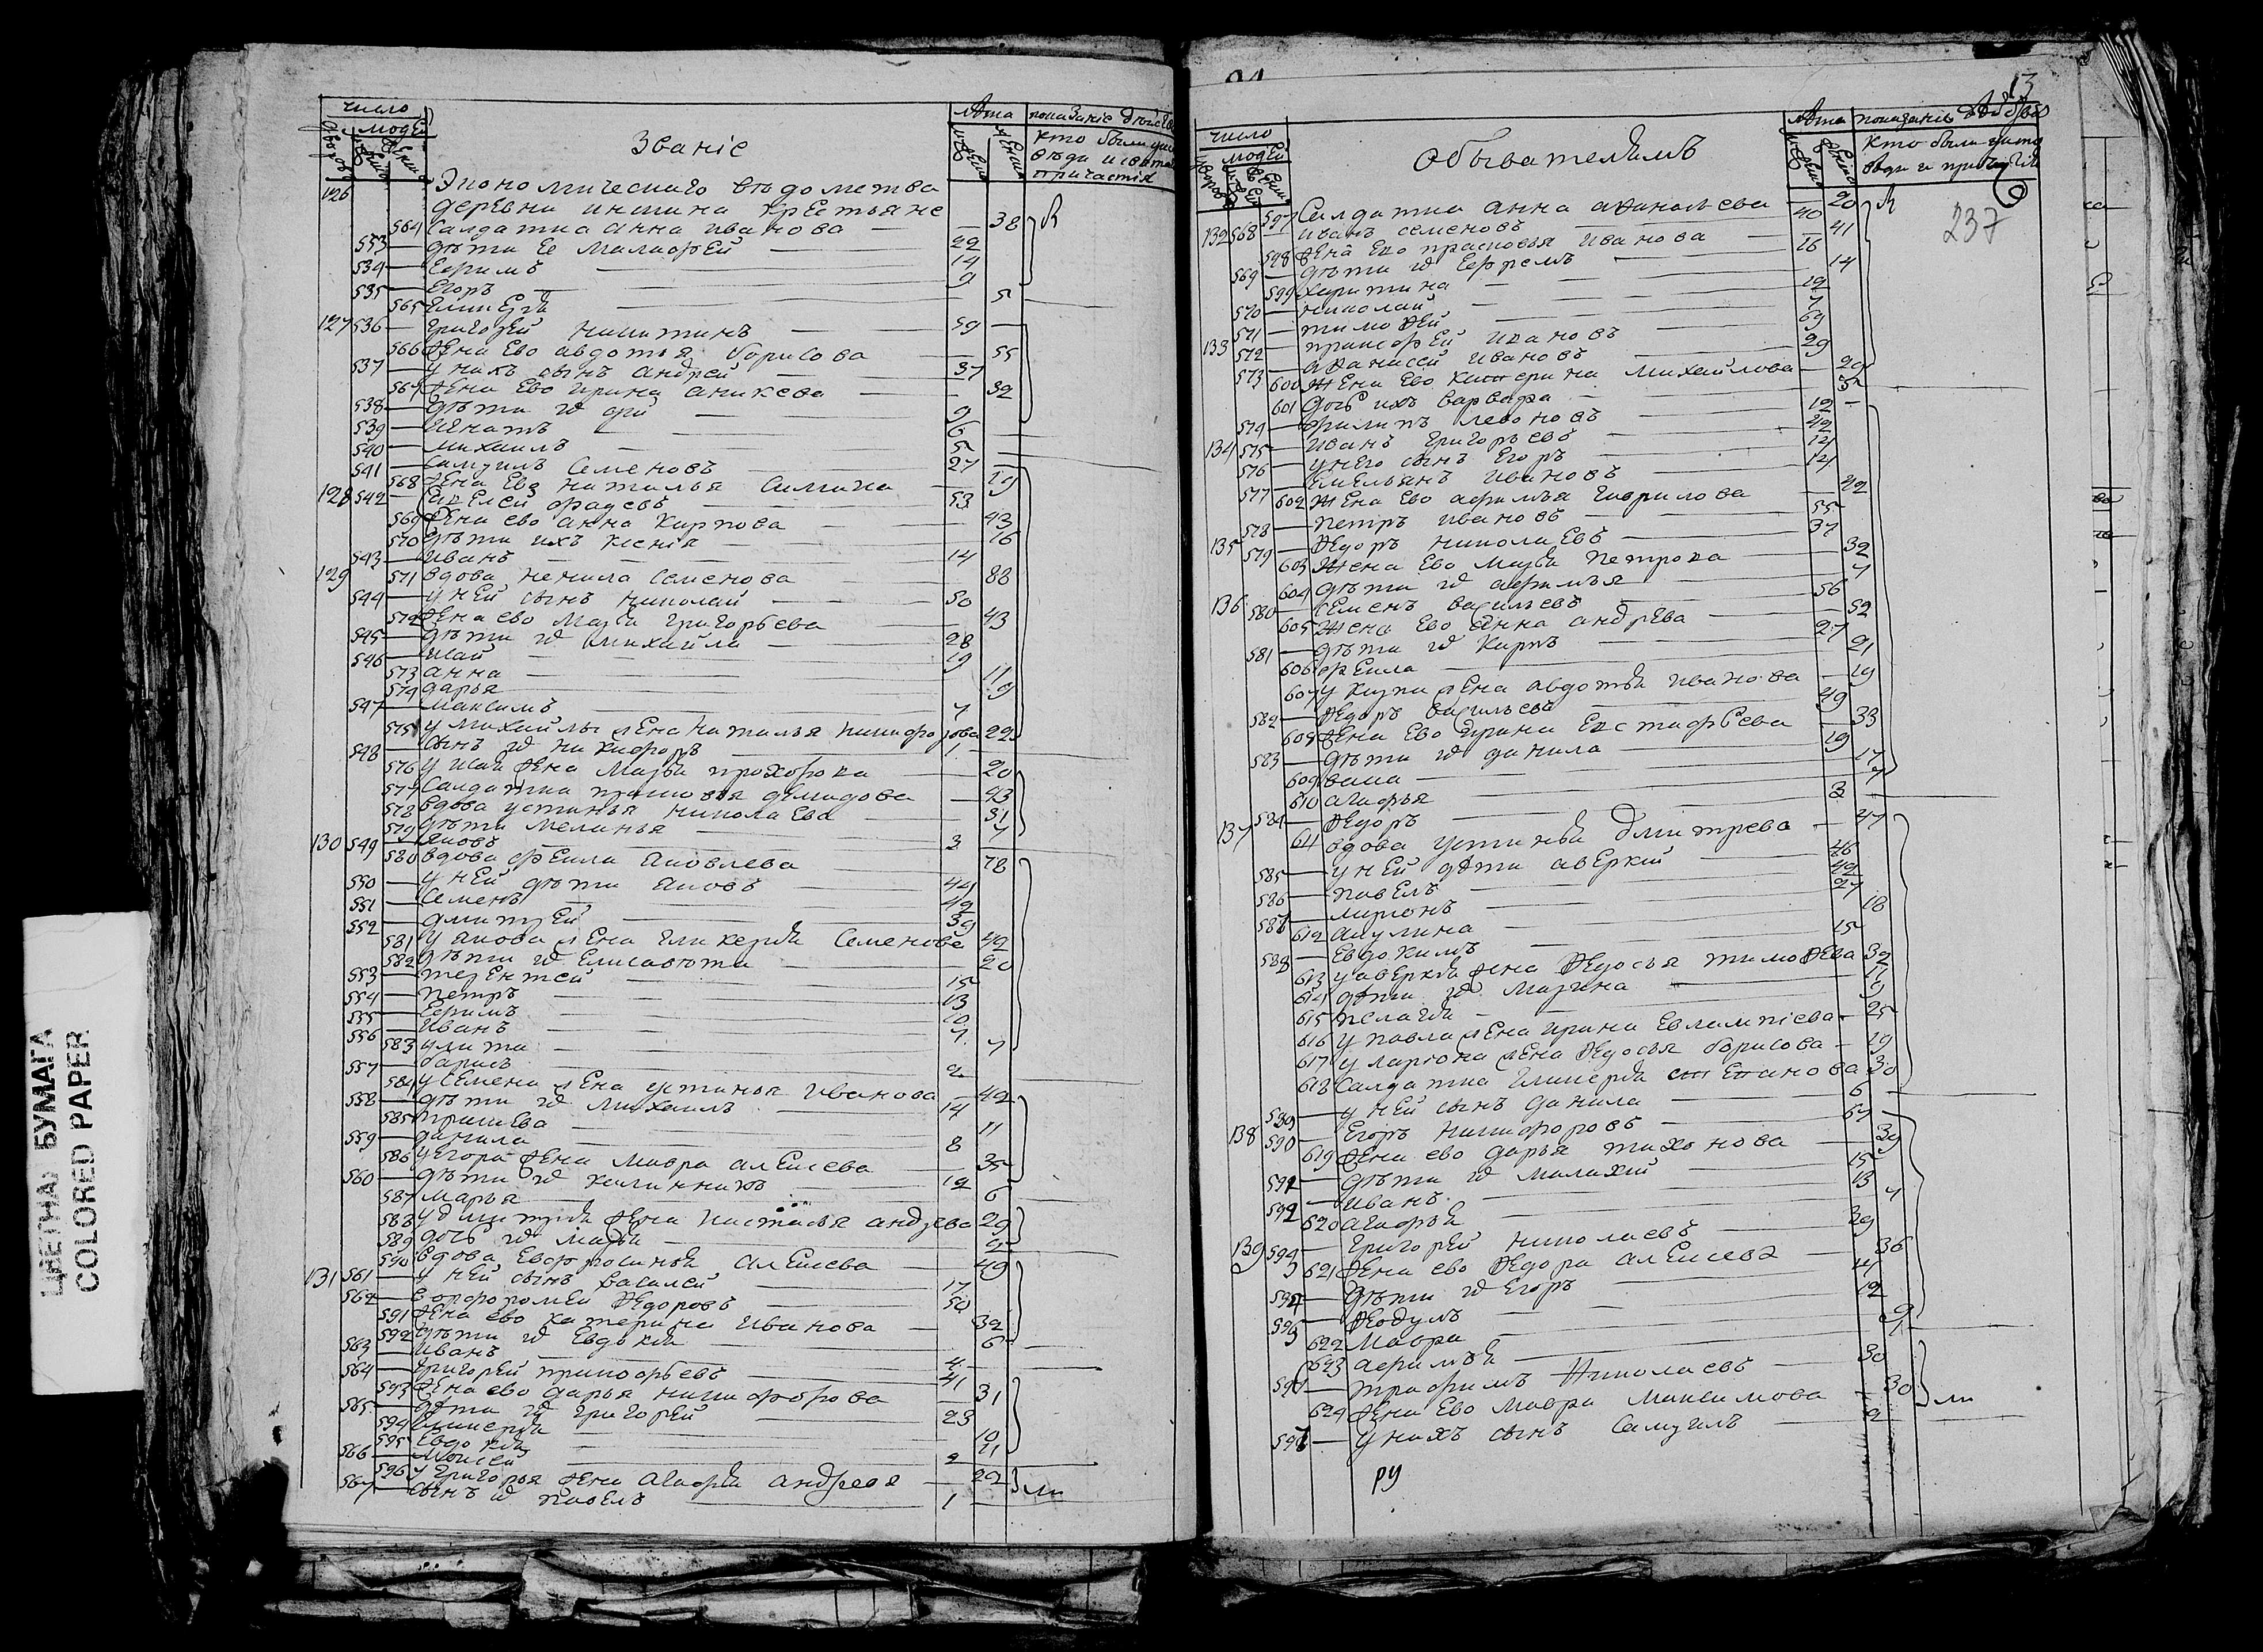 ЦВЕТНАЯ БУМАГА
COLORED PAPER
число
людей
Званіе
лѣта
показаніе
кто были
126
Экономическаго вѣдомства
деревни крестьяне
564 Салдатка анна иванова — 38
553 — дѣти ее малафей — 22
534 — Ефримъ — 14
535 — Егоръ — 9
565 гликерья — 5
127 536 — григорей никитинъ — 59
566 жена ево авдотья борисова — 55
537 — у нихъ сынъ андрей — 37
567 жена ево ирина аникева — 32
538 — дѣти их — 9
539 — игнатъ — 6
540 — михаилъ — 5
541 — Самуилъ Семеновъ — 27
568 жена ево наталья — 29
128 542 — — 53
569 жена ево анна карпова — 43
570 дѣти ихъ ксенія — 16
543 — иванъ — 14
129 571 вдова ненила семенова — 88
544 — у ней сынъ николай — 50
572 жена ево марья григорьева — 43
545 — дѣти их михайла — 28
546 — исай — 19
573 анна — 11
574 дарья — 9
547 — максимъ — 7
575 у михайлы жена наталья никифорова 22
548 — сынъ их никифоръ — 1
576 у исая жена марья прохорова — 20
577 Салдатка демидова — 43
578 вдова устинья николаева — 31
579 дѣти меланья — 7
130 549 — яковъ — 3
580 вдова фекла яковлева — 78
550 — у ней дѣти яковъ — 44
551 — Семенъ — 42
552 — дмитрей — 39
581 у якова жена гликерья Семенова 42
582 дѣти их елисавета — 20
553 — терентей — 15
554 — петръ — 13
555 — Ефримъ — 10
556 — иванъ — 7
583 улита — 7
557 — борисъ — 2
584 у Семена жена устинья иванова — 42
558 — дѣти их михаилъ — 14
585 — 11
559 — данила — 8
586 у егора жена мавра алексева — 35
560 — дѣти их калинникъ — 12
587 марья — 6
588 у дмитрія жена настасья андрева 29
589 дочь их марья — 2
590 вдова Евфросинья алексева — 49
131 561 — у ней сынъ василей — 17
562 — ворфоломей федоровъ — 50
591 жена ево катерина иванова — 32
592 дѣти их Евдокія — 6
563 — иванъ — 4
564 — григорей прикофьевъ — 41
593 жена ево дарья никифорова — 31
565 — дѣти их григорей — 23
594 гликерья — 10
595 Евдокія — 11
566 — моисей — 2
596 у григорья жена агафья андрева — 22
567 — сынъ их павелъ — 1
13
число
людей
Обывателямъ
лѣта
показаніе
кто были
237
597 Салдатка анна афанасьева — 20
132 568 — иванъ семеновъ — 40
598 жена ево прасковья иванова — 41
569 — дѣти их Ефремъ — 16
599 харитина — 14
570 — николай — 12
571 — тимофей — 7
133 572 — прикофей ивановъ — 69
573 — афанасей ивановъ — 29
600 жена ево катерина михайлова — 29
601 дочь ихъ варвара — 5
574 — филипъ левоновъ — 12
134 575 — иванъ григорьевъ — 42
576 — у него сынъ Егоръ — 14
577 — Емельянъ ивановъ — 14
602 жена ево афимья гаврилова — 42
578 — петръ ивановъ — 55
135 579 — федоръ николаевъ — 37
603 жена ево марья петрова — 32
604 дѣти их афимья — 7
136 580 — Семенъ васильевъ — 56
605 жена ево анна андрева — 52
581 — дѣти их карпъ — 27
606 фекла — 21
607 у карпа жена авдотья иванова — 19
582 — федоръ васильевъ — 49
608 жена ево ирина Евстафьева — 33
583 — дѣти их данила — 19
609 васса — 17
610 агафья — 7
584 — федоръ — 3
137 611 вдова устинья дмитрева — 47
585 — у ней дѣти аверкій — 46
586 — павелъ — 42
587 — ларіонъ — 27
612 акулина — 18
588 — Евдокимъ — 15
613 у аверкія жена федосья тимофева 32
614 дѣти их марина — 11
615 пелагія — 9
616 у павла жена ирина Евлампіева — 25
617 у ларіона жена федосья борисова — 29
618 Салдатка гликерья степанова 30
589 — у ней сынъ данила — 6
138 590 — Егоръ никифоровъ — 67
619 жена ево дарья тихонова — 39
591 — дѣти их малахій — 15
592 — иванъ — 13
620 агафья — 7
139 593 — григорей николаевъ — 39
621 жена ево федора алексева — 36
594 — дѣти их Егоръ — 14
595 — федулъ — 12
622 мавра — 9
623 афимья — 1
596 — трафимъ николаевъ — 30
624 жена ево мавра максимова — 30
597 — у нихъ сынъ Самуилъ — 2
ру